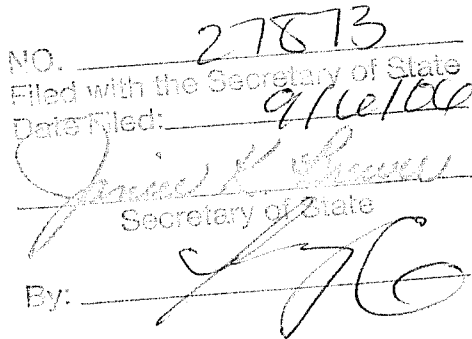 NO. 27873
Filed with the Secretary of State
Date Filed: 9/6/06
Secretary of State
By: